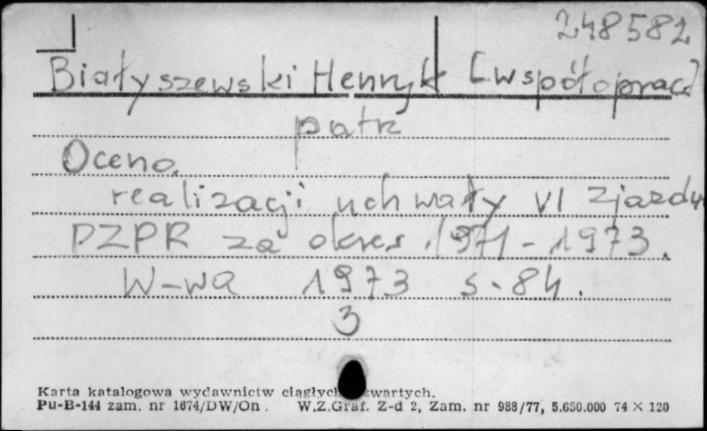 248582
Białyszewski Henryk [współoprac]
patrz
Ocena
realizacji uchwały VI Zjazdu
PZPR za okres 1971-1973.
W-wa 1973 s. 84.
3
Karta katalogowa wydawnictw ciągłych zwartych.
Pu-B-144 zam. nr 1674/DW/On. W.Z.Graf. Z-d 2, Zam. nr 988/77, 5.650.000 74 × 120